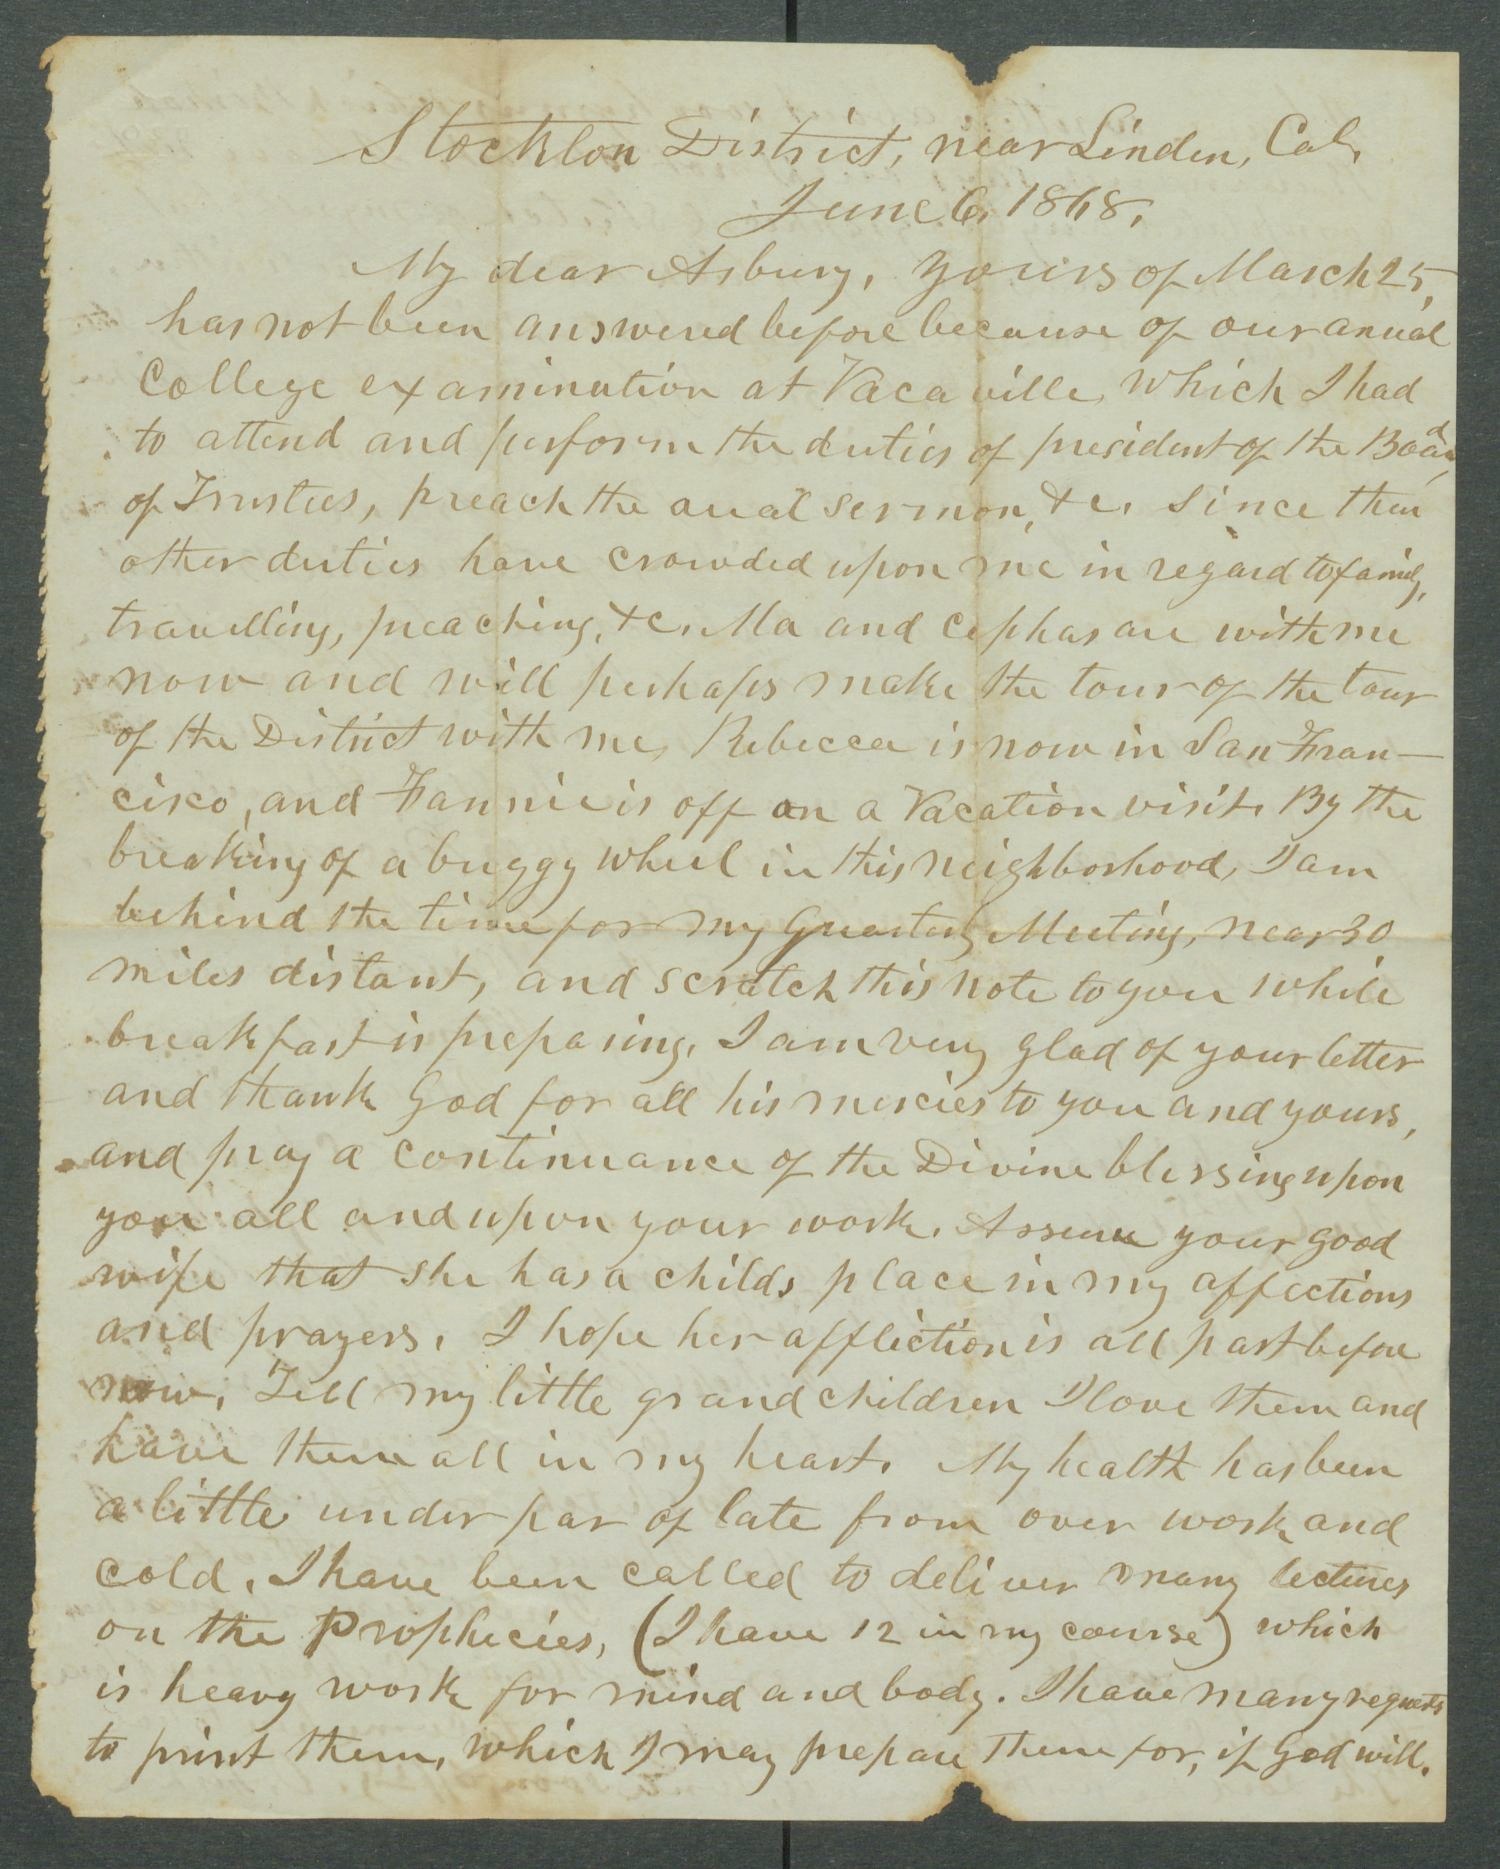 Stockton District, near Linden, Cal,
June 6, 1868,
My dear Asbury, Yours of March 25,
has not been answered before because of our anual
College examination at Vacaville, which I had
to attend and perform the duties of president of the Board,
of Trustees, preach the anual sermon, &c. Since then
other duties have crowded upon me in regard to family,
travelling, preaching, &c. Ma and Cephas are with me
now and will perhaps make the tour of the tour
of the District with me, Rebecca is now in San Fran-
cisco, and Fannie is off on a Vacation visit. By the
breaking of a buggy wheel in this neighborhood, I am
behind the time for my Quarterly Meeting, near 30
miles distant, and scratch this note to you while
breakfast is preparing, I am very glad of your letter
and thank God for all his mercies to you and yours,
and pray a continuance of the Divine blessing upon
you all and upon your work. Assure your good
wife that she has a childs place in my affections
and prayers. I hope her affliction is all past before
now. Tell my little grand children I love them and
have them all in my heart. My health has been
a little under par of late from over work and
cold. I have been called to deliver many lectures
on the Prophecies, (I have 12 in my course) which
is heavy work for mind and body. I have many requests
to print them, which I may prepare them for, if God will.